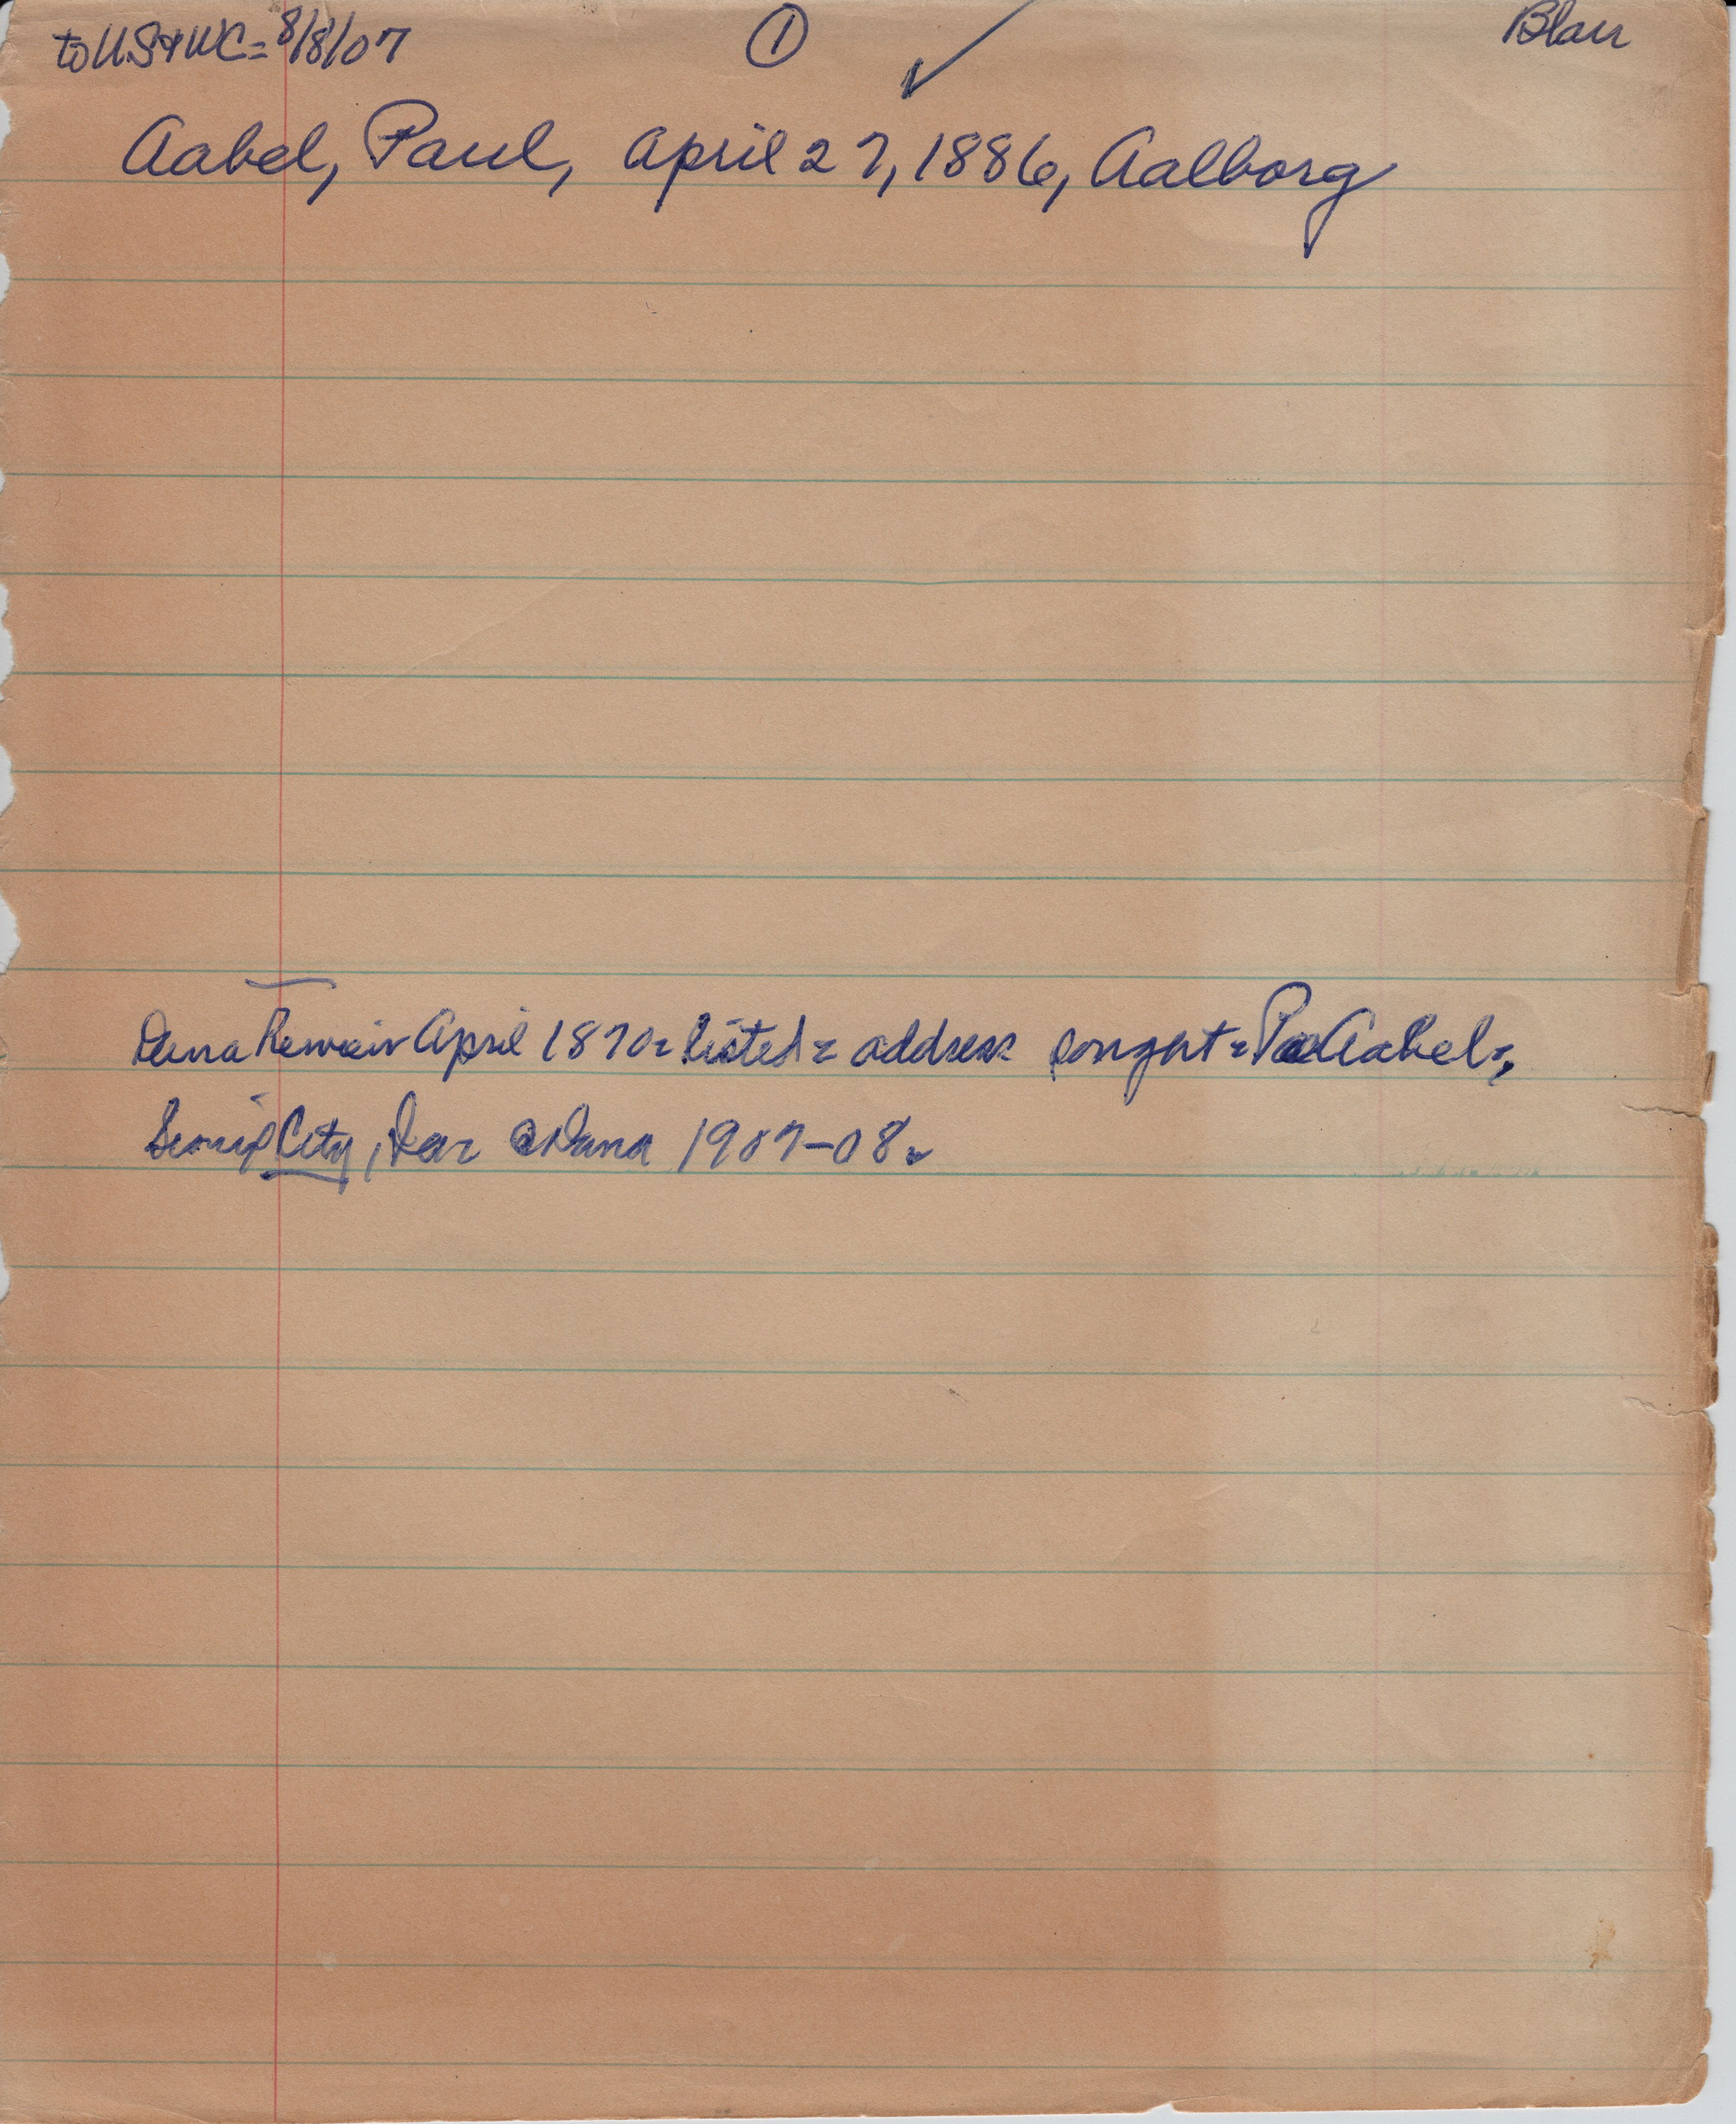 to U.S + WC = 8/8/07 ① ✓ Blair
Aabel, Paul, April 27, 1886, Aalborg
Dana Review April 1870 = listed = address sought = P Aabel,
City, Dana 1907-08.